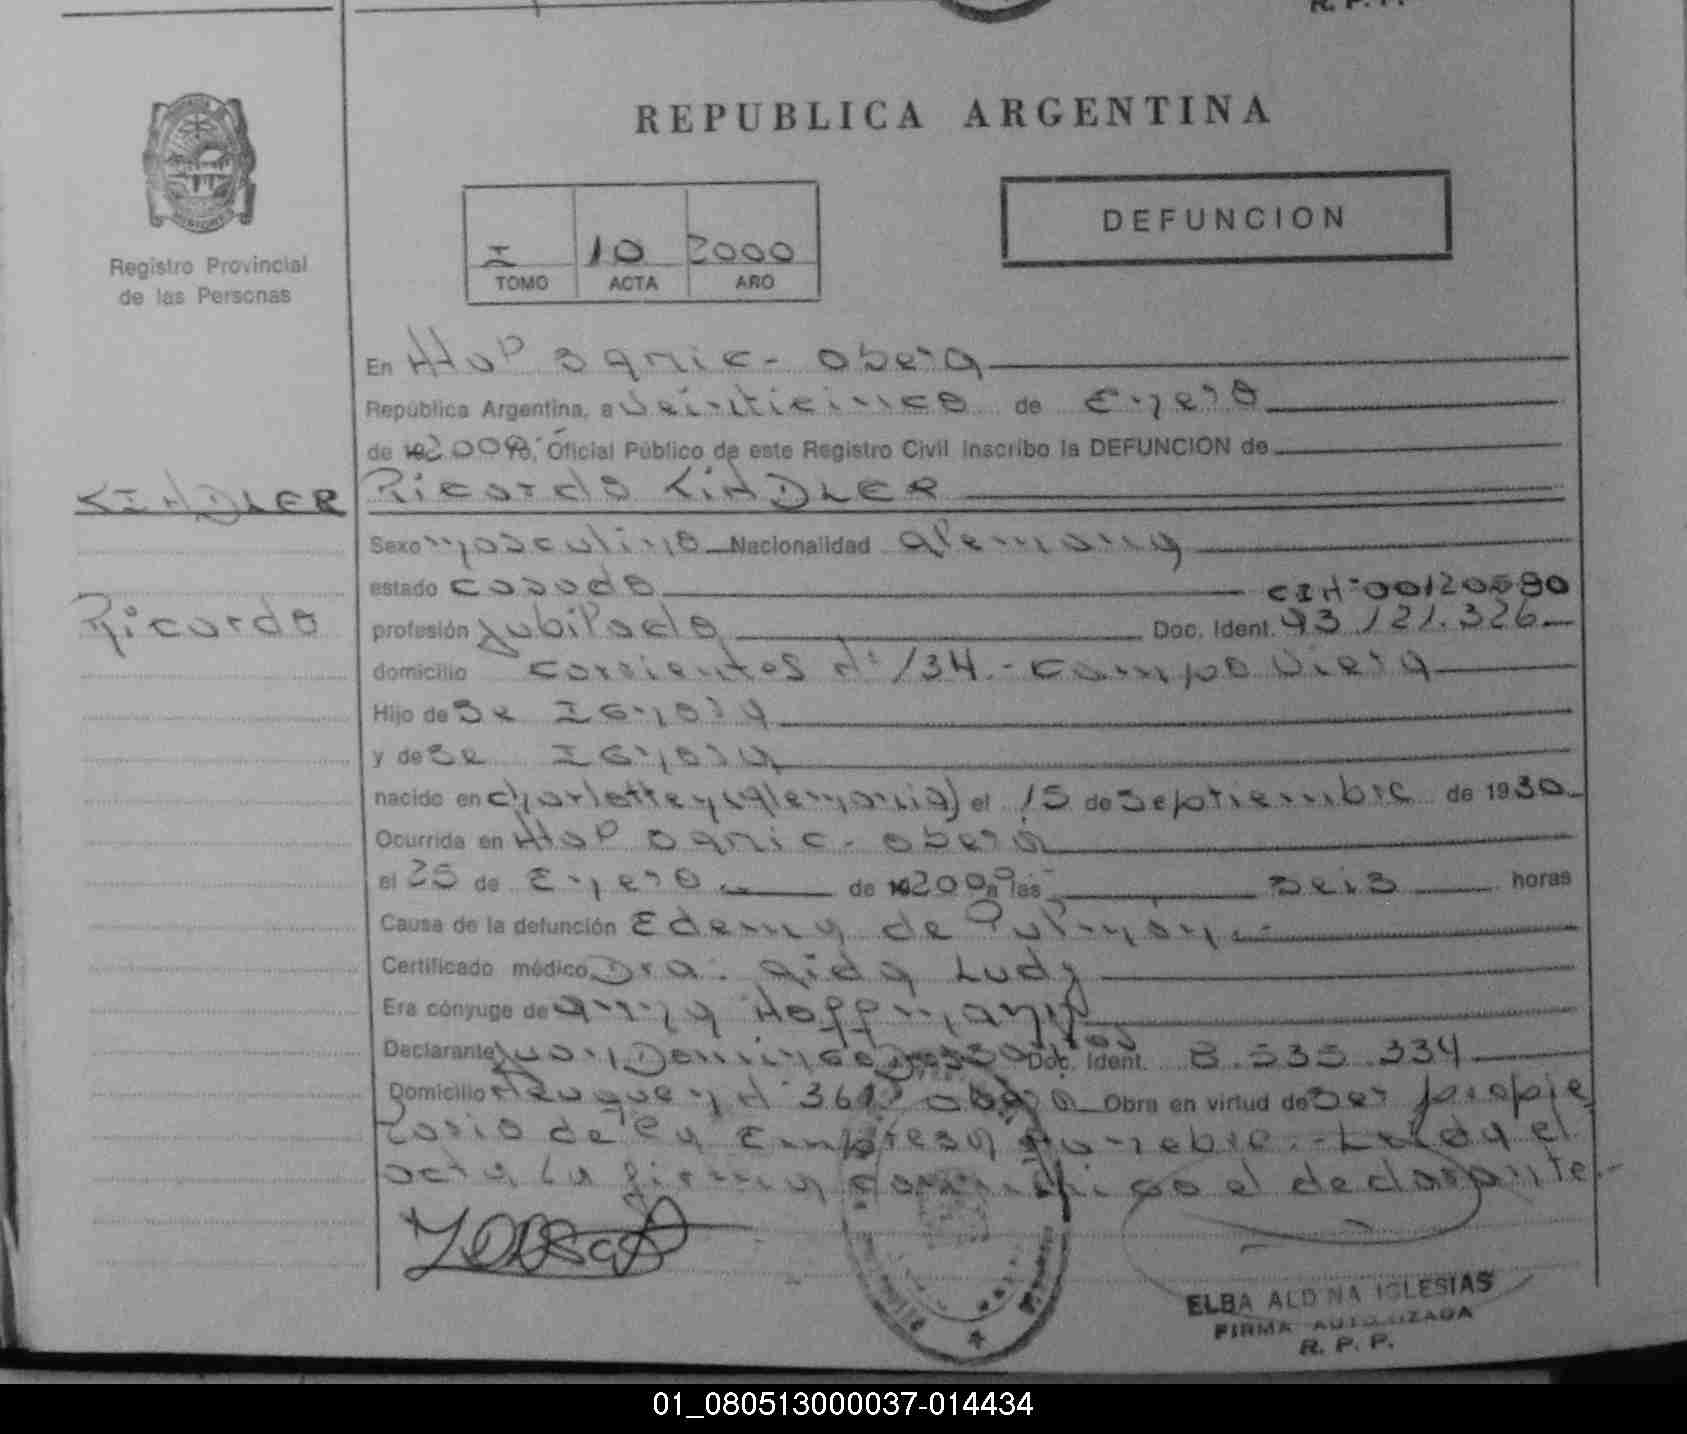 R. P. P.
REPUBLICA ARGENTINA
DEFUNCION
I 10 2000
TOMO ACTA AÑO
Registro Provincial
de las Personas
En Hosp Samic - Oberá
República Argentina, a veinticinco de Enero
de 2000, Oficial Público de este Registro Civil Inscribo la DEFUNCION de
KINDLER
Ricardo KINDLER
Sexo masculino Nacionalidad alemana
estado casado CIN°00120590
Ricardo
profesión Jubilado Doc. Ident. 93.121.326
domicilio corrientes N° 134 - Campo Viera
Hijo de Se Ignora
y de Se Ignora
nacido en (alemania) el 15 de septiembre de 1930
Ocurrida en Hosp Samic - Oberá
el 25 de Enero de 2000 a las seis horas
Causa de la defunción Edema de Pulmon
Certificado médico Dra. aida
Era cónyuge de anna Hoffmann
Declarante Juan Domingo Dos Santos Doc. Ident. 8.535.334
Domicilio Neuquen N° Oberá Obra en virtud de ser propie
tario de la Empresa funebre.- Leida el
acta la firma conmigo el declarante.-
ELBA ALDINA IGLESIAS
FIRMA AUTORIZADA
R. P. P.
01_080513000037-014434